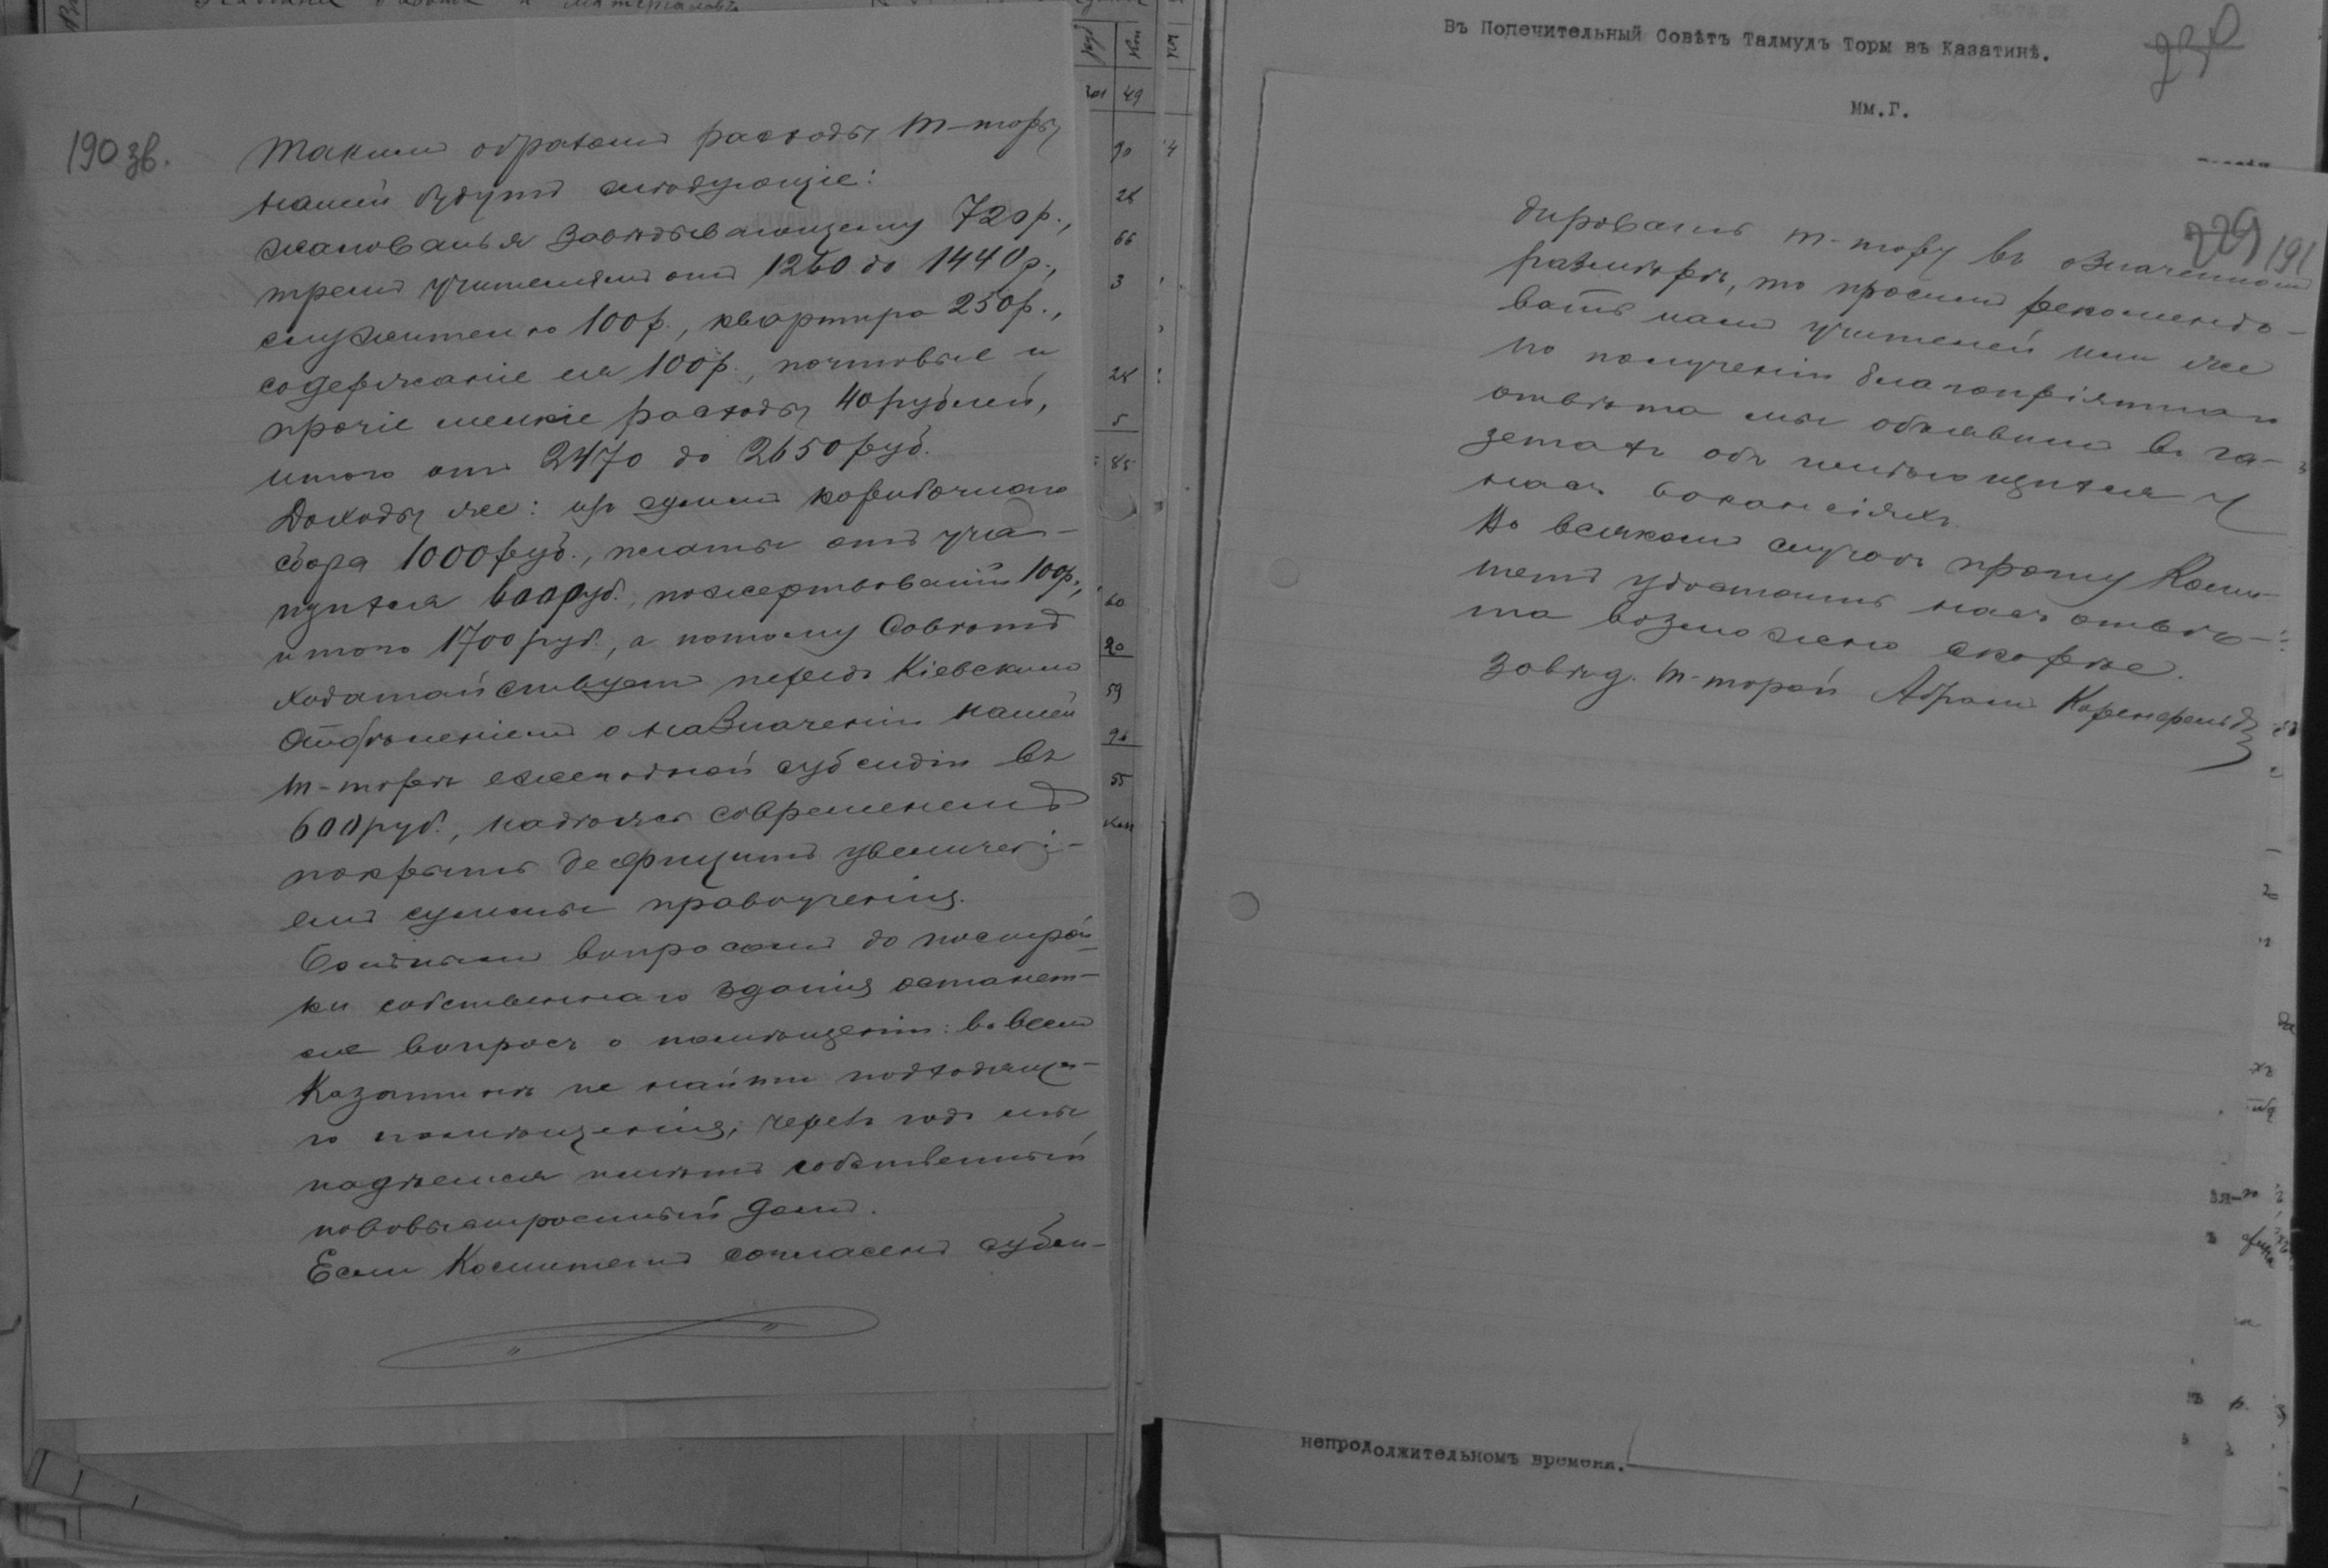 190 зв.
Такимъ образомъ расходы т-торы
нашей будутъ слѣдующіе:
жалованья завѣдывающему 720 р.,
тремъ учителямъ отъ 1260 до 1440 р.,
служителю 100 р., квартира 250 р.,
содержаніе ея 100 р., почтовые и
прочіе мелкіе расходы 40 рублей,
итого отъ 2470 до 2650 руб.
Доходы же: изъ суммъ коробочнаго
сбора 1000 руб., платы отъ уча-
щихся 600 руб., пожертвованій 100 р.,
итого 1700 руб., а потому Совѣтъ
ходатайствуетъ передъ Кіевскимъ
Отдѣленіемъ о назначеніи нашей
т-торѣ ежегодной субсидіи въ
600 руб., надѣясь современемъ
покрыть дефицитъ увеличені-
емъ суммы правоученія.
Больнымъ вопросомъ до построй-
ки собственнаго зданія останет-
ся вопросъ о помѣщеніи: во всемъ
Казатинѣ не найти подходяща-
го помѣщенія; черезъ годъ мы
надѣемся имѣть собственный
нововыстроенный домъ.
Если Комитетъ согласенъ субси-
Въ Попечительный Совѣтъ Талмудъ Торы въ Казатинѣ.
230
Мм.Г.
229 191
дировать т-тору въ означенномъ
размѣрѣ, то просимъ рекомендо-
вать намъ учителей или же
по полученіи благопріятнаго
отвѣта мы объявимъ въ га-
зетахъ объ имѣющихся у
насъ вакансіяхъ.
Во всякомъ случаѣ прошу Коми-
тетъ удостоить насъ отвѣ-
та возможно скорѣе.
Завѣд. т-торой Абрамъ Коренфельдъ
непродолжительномъ времени.